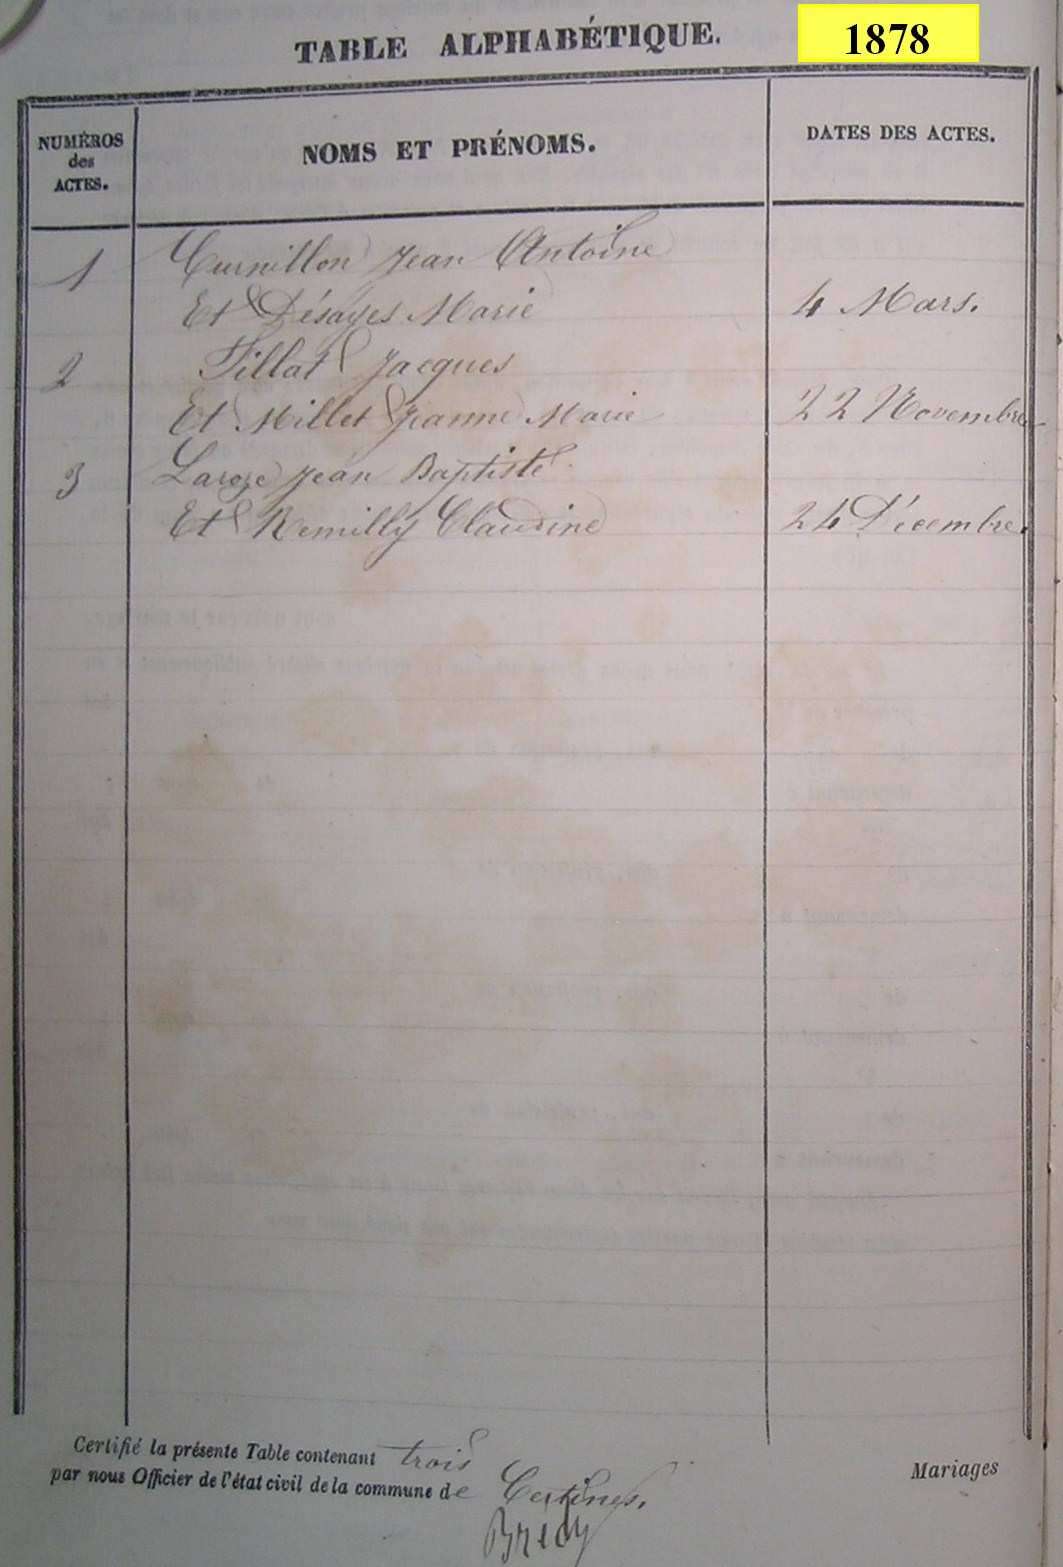 TABLE ALPHABÉTIQUE.
1878
NUMÉROS des ACTES.
NOMS ET PRÉNOMS.
DATES DES ACTES.
1 Curnillon Jean Antoine
Et Désayes Marie 4 Mars.
2 Fillat Jacques
Et Millet Jeanne Marie 22 Novembre
3 Laroze Jean Baptiste
Et Remilly Claudine 24 Décembre.
Certifié la présente Table contenant trois
par nous Officier de l'état civil de la commune de Certines.
Mariages